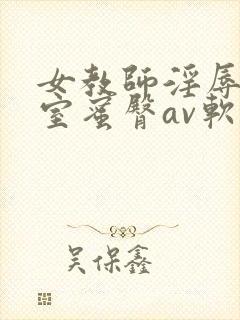 女教師淫辱
室蜜臀av軟
吴保鑫